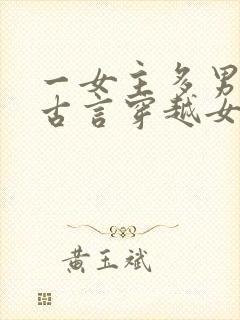 一女主多男
古言穿越女
黄玉斌